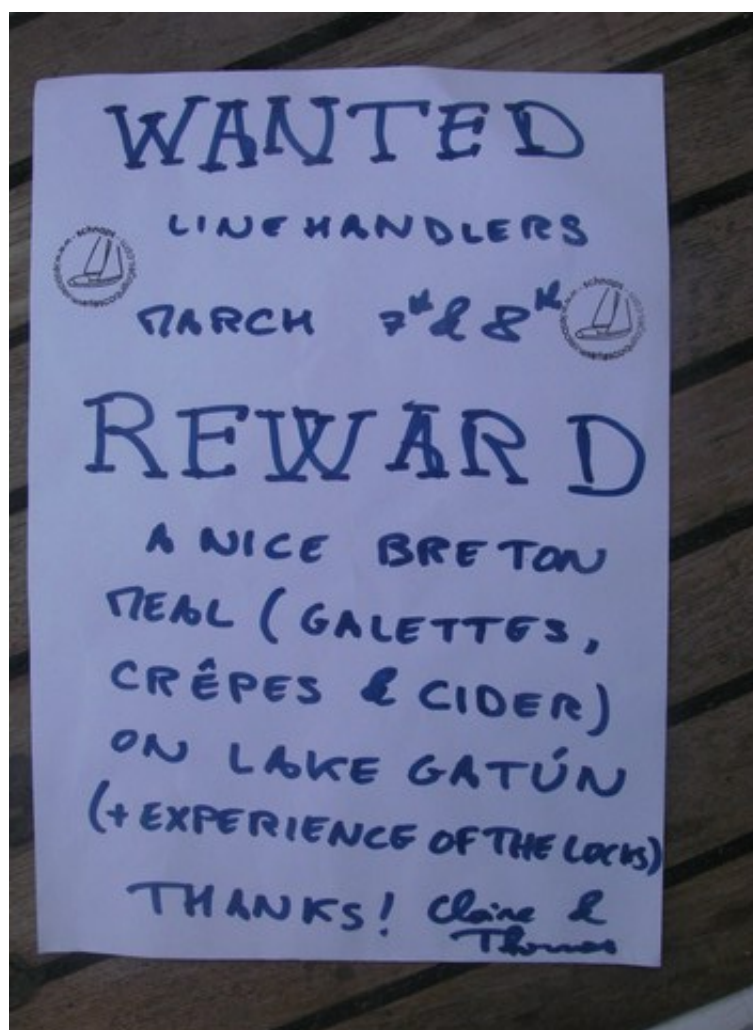 WANTED
LINE HANDLERS
schnaps
MARCH 7th & 8th
schnaps
REWARD
A NICE BRETON
MEAL (GALETTES,
CRÊPES & CIDER)
ON LAKE GATÚN
(+ EXPERIENCE OF THE LOCKS)
THANKS! Claire &
Thomas